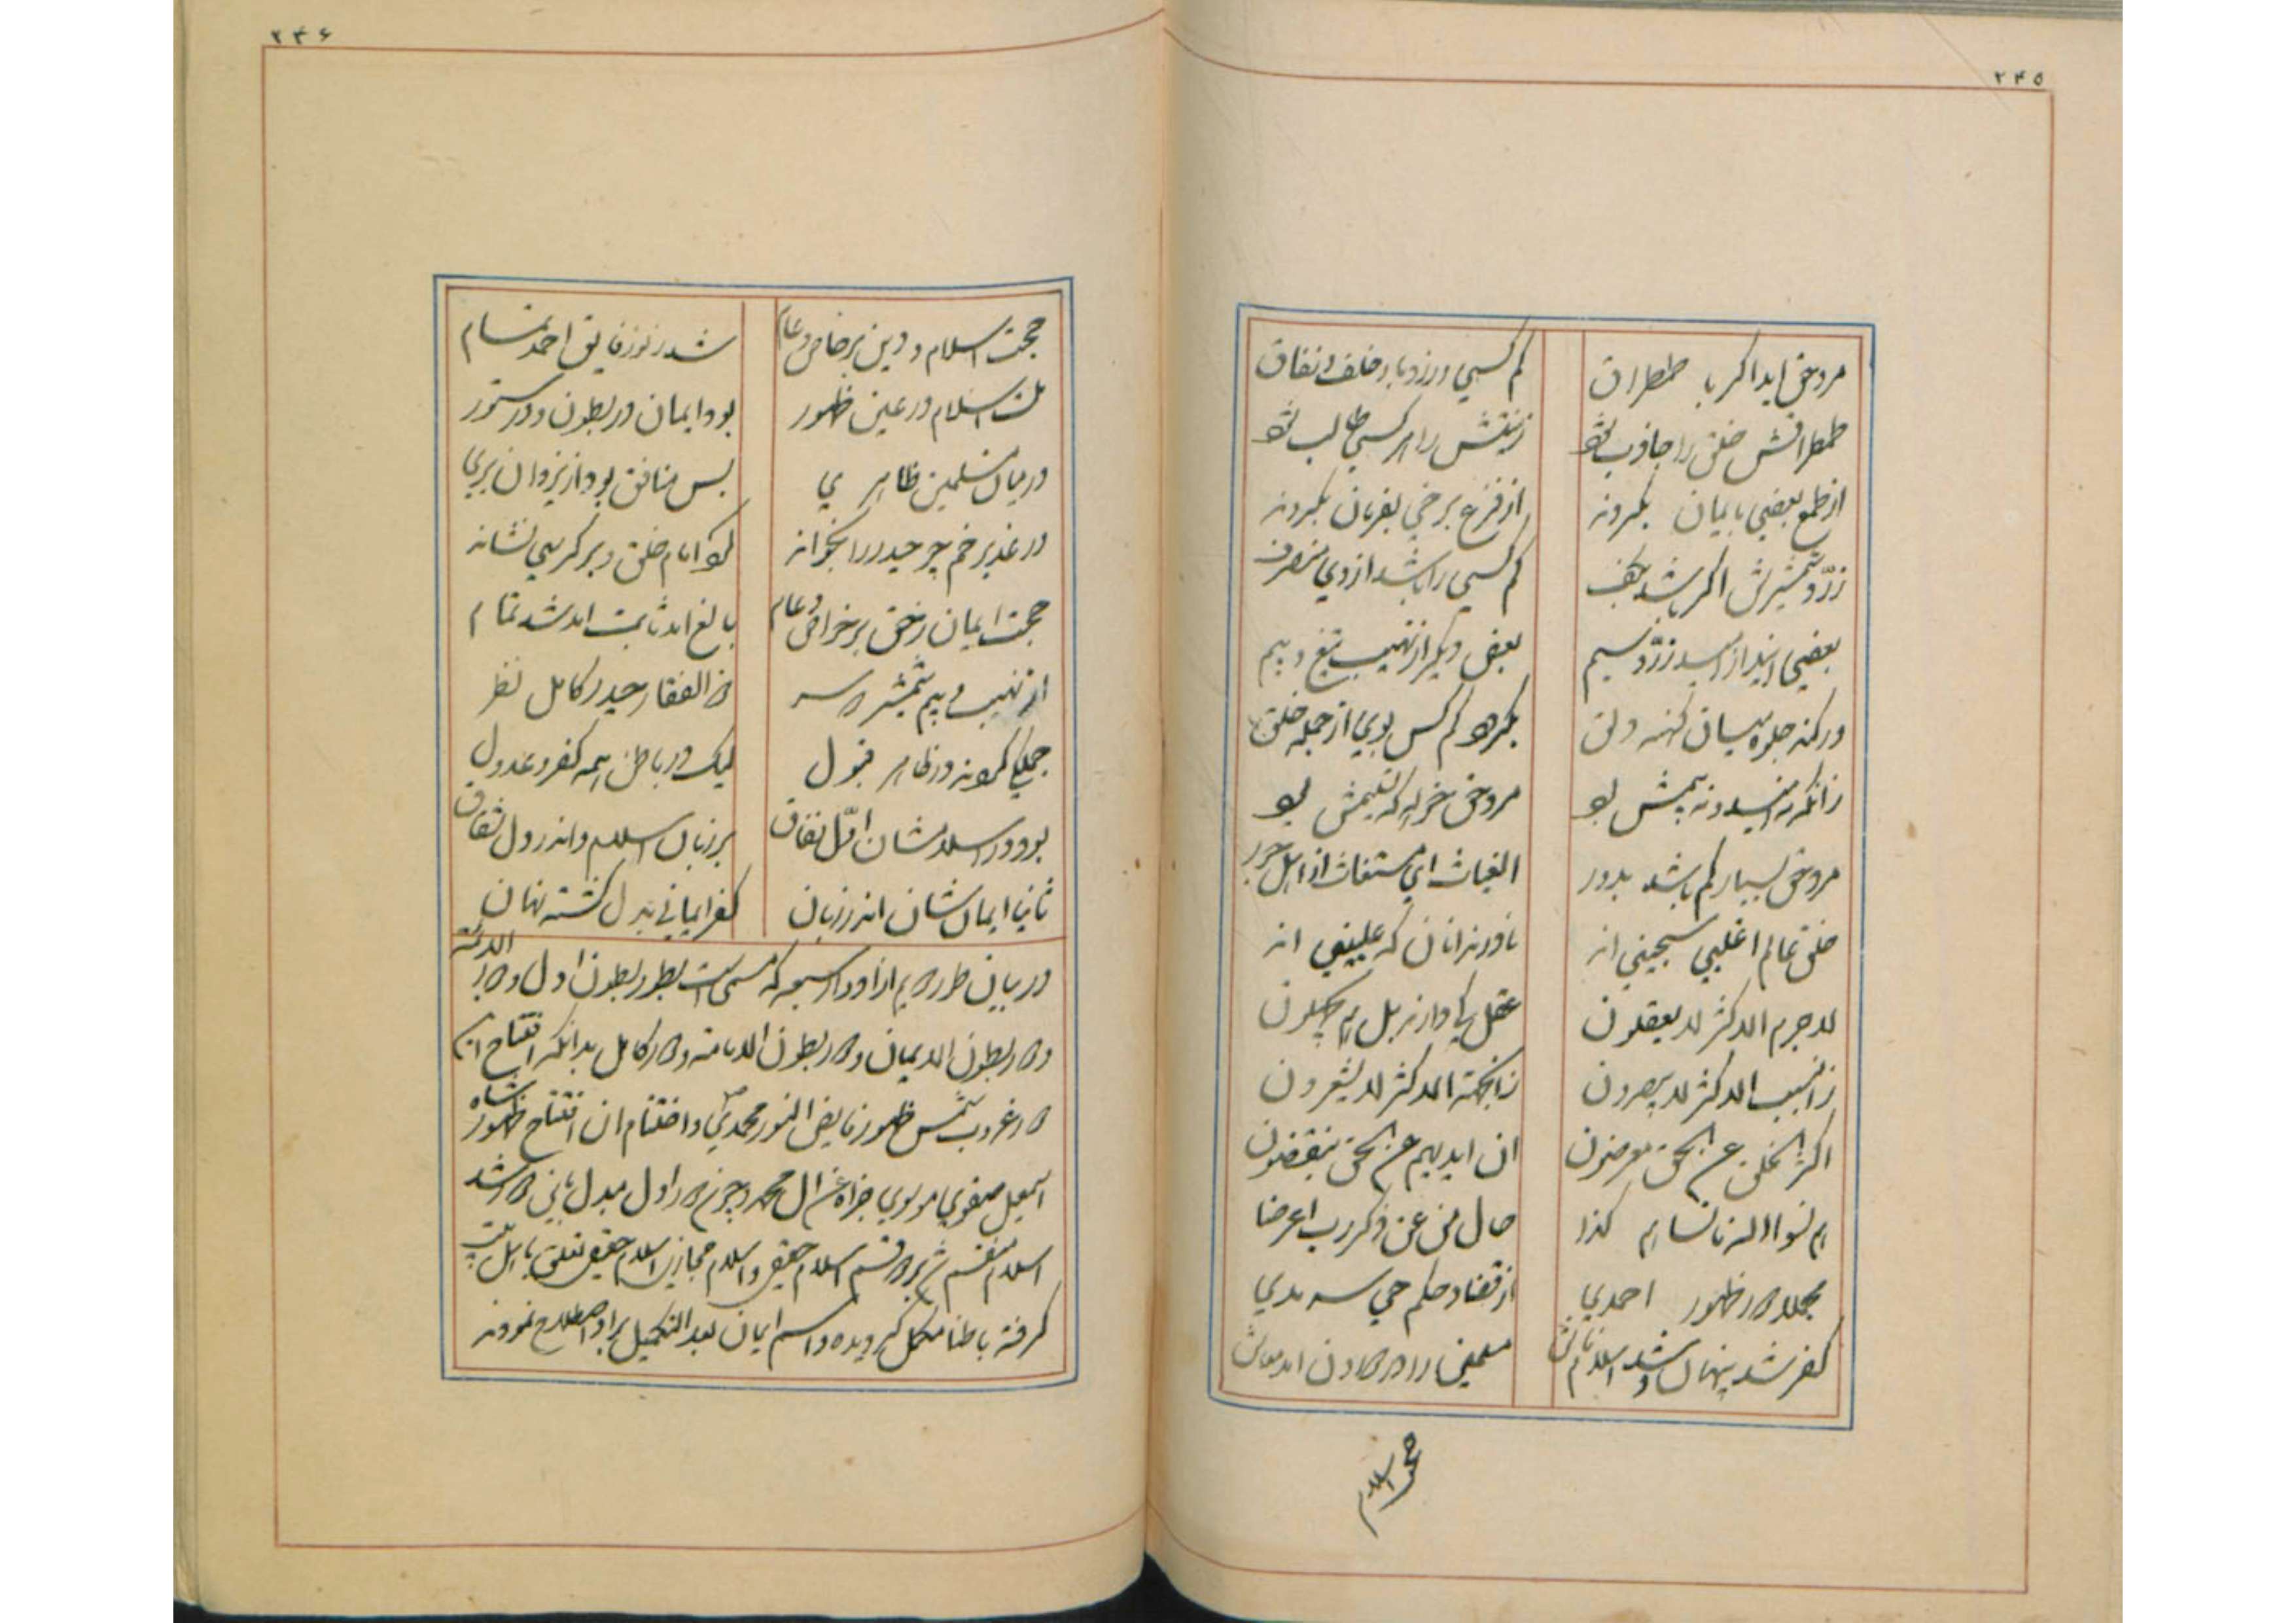 ۲۴۵
مرد حق اید اگر با طمطراق
کم کسی ورزد با و خلف و نفاق
طمطراقش خلق را جاذب بود
زینتش را هر کسی طالب بود
از طمع بعضی بایمان بگروند
از فزع برخی بفرمان بگروند
زرّ و شمشیرش اگر باشد بکف
کم کسی را باشد از وی منصرف
بعضی ایند از امید زرّ و سیم
بعض دیگر از نهیب تیغ و بیم
ور کند جلوه میان کهنه دلق
بگرود کم کس بوی از جمله خلق
زانکه نه امید و نه بیمش بود
مرد حق خواهد که تعلیمش بود
مرد حق بسیار کم باشد بدور
الغیاث ای مستغاث از اهل جور
خلق عالم اغلبی سجینی اند
نادرند انان که علیینی اند
لا جرم الاکثر لا یعقلون
عقل کی دارند بل هم یجهلون
زانسبب الاکثر لا یبصرون
زانجهة الاکثر لا یشعرون
اکثر الخلق عن الحق معرضون
ان ایدیهم عن الحق ینقضون
هم نسوا الله فانساهم کذا
حال من عن ذکر رب اعرضا
مجملا در ظهور احمدی
از قضا و حکم حی سرمدی
کفر شد پنهان و شد اسلام فاش
مسلمین را در
حجت اسلام
۲۴۶
حجت اسلام و دین بر خاص و عام
شد ز نور فایق احمد تمام
لیک اسلام در عین ظهور
بود ایمان در بطون و در ستور
در میان مسلمین ظاهری
بس منافق بود از یزدان بری
در غدیر خم چو حیدر را بخواند
کو امام خلق و بر کرسی نشاند
حجت ایمان ز حق بر خاص و عام
بالغ امد ثابت امد شد تمام
از نهیب و بیم شمشیر دو سر
ذو الفقار حیدر کامل نظر
جملگی کردند در ظاهر قبول
لیک در باطن همه کفر و عدول
بود در اسلامشان اوّل نفاق
بر زبان اسلام و اندر دل شقاق
ثانیا ایمانشان اندر زبان
کفر ایمانی بدل گشته نهان
در بیان طور دویم از ادوار سبعه که مسمی است بطور بطون اول و دور
دور بطون الایمان و دور بطون الامامة و دور کامل بدانکه افتتاح ان
در غروب شمس ظهور فایض النور محمدی ص و اختتام ان افتتاح ظهور شاه
اسمعیل صفوی موسوی جزاه عن ال محمد و چون دور اول مبدل بثانی دور شد
اسلام منقسم شد بر دو قسم اسلام حقیقی و اسلام مجازی اسلام حقیقی تعلق باهل بیت
گرفته باطنا مکمل گردیده و اسم ایمان بعد التکمیل بر او اصطلاح نمودند